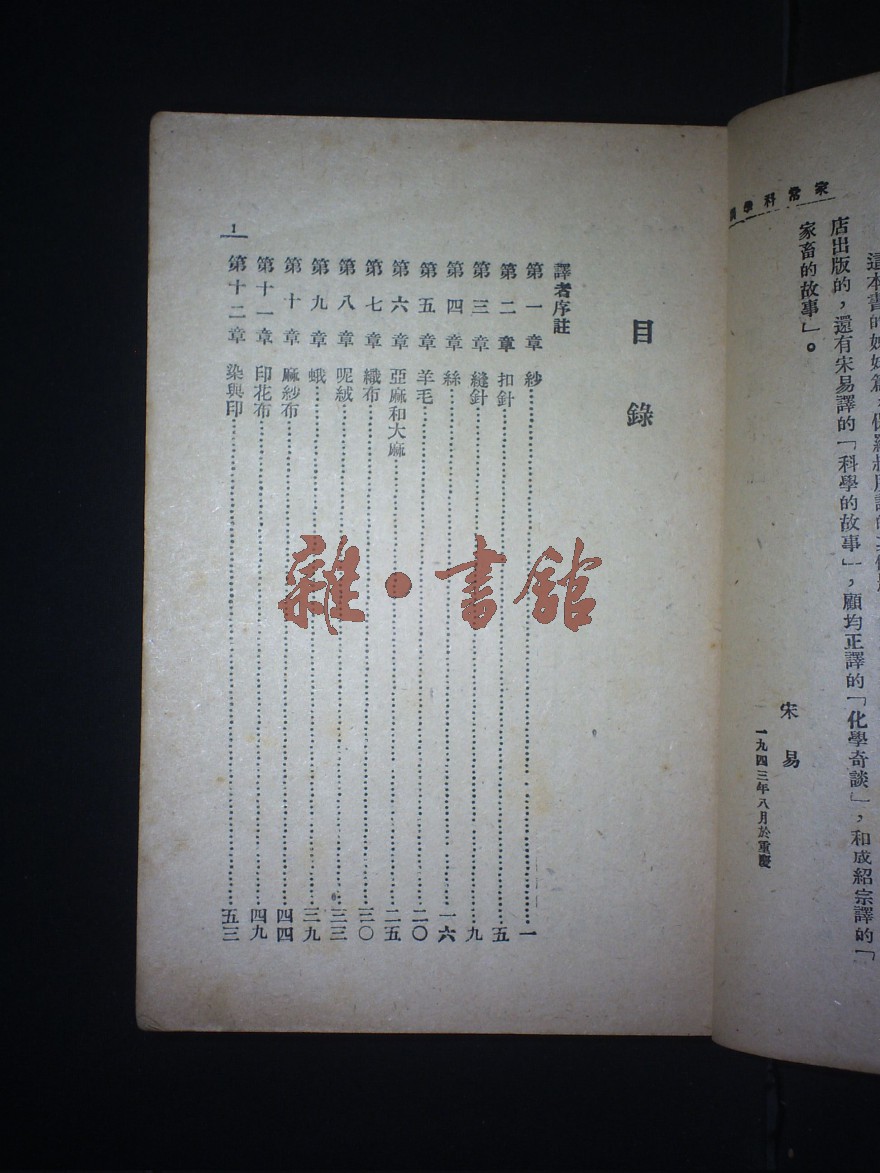 家常科學
店出版的，還有宋易譯的「科學的故事」，顧均正譯的「化學奇談」，和成紹宗譯的「
家畜的故事」。
宋易
一九四三年八月於重慶
目錄
譯者序註
第一章 紗 一
第二章 扣針 五
第三章 縫針 九
第四章 絲 一六
第五章 羊毛 二〇
第六章 亞麻和大麻 二五
第七章 織布 三〇
第八章 呢絨 三三
第九章 蛾 三九
第十章 麻紗布 四四
第十一章 印花布 四九
第十二章 染與印 五三
1
雜·書館